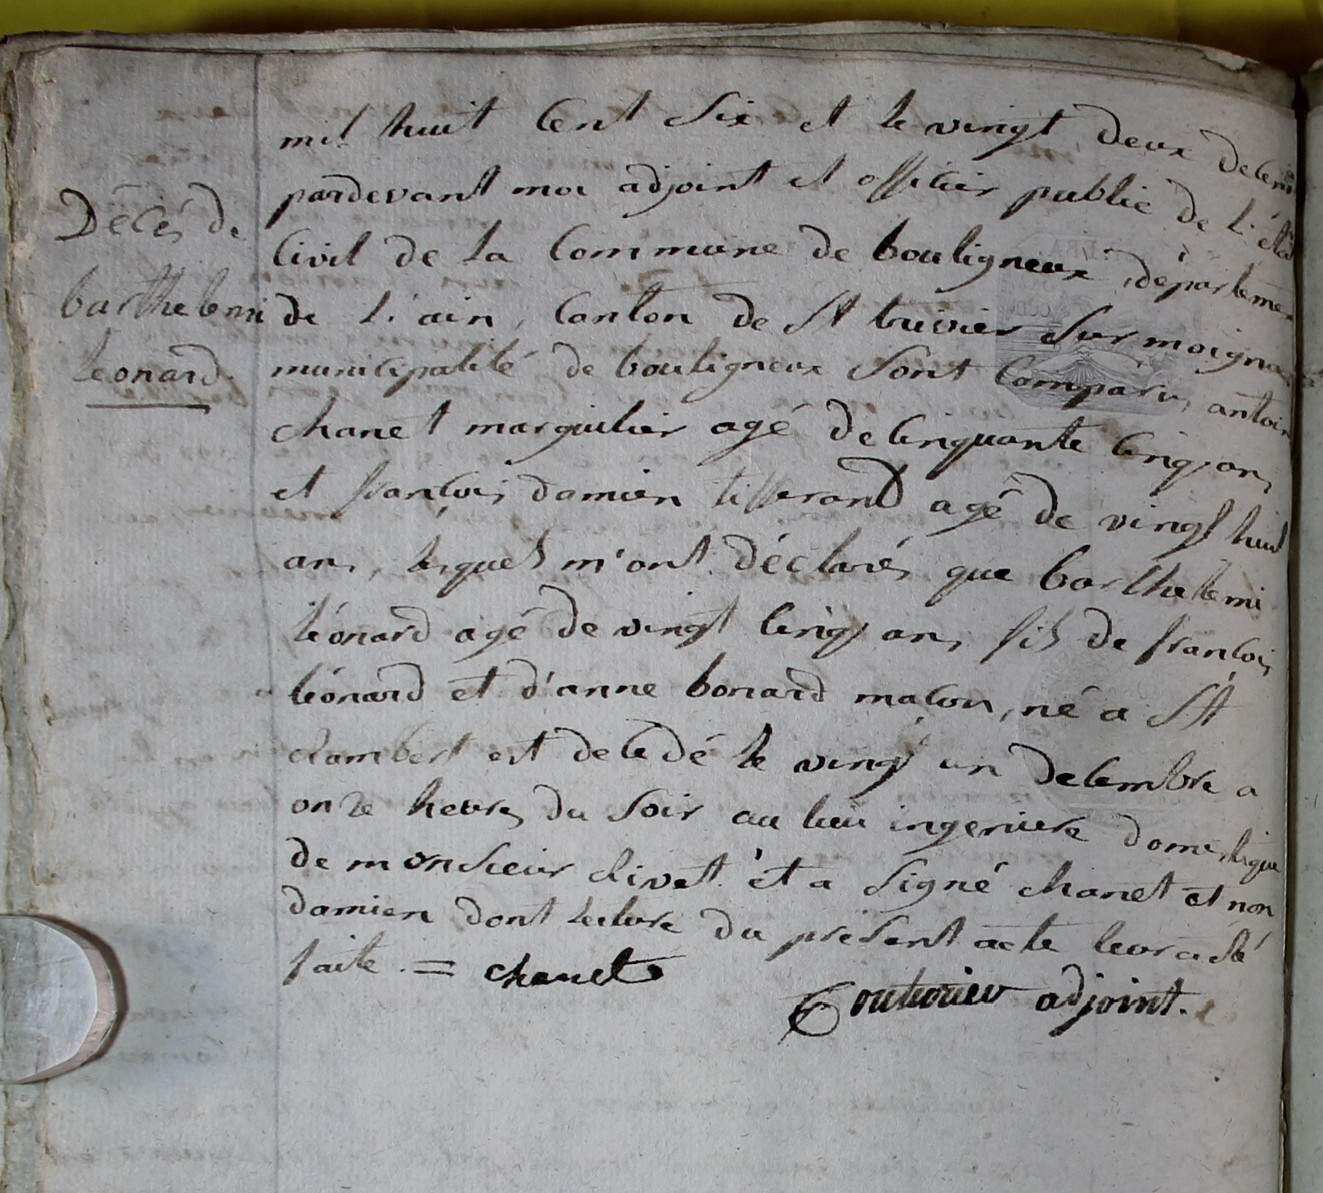 Décés de
barthelemi
Léonard
mil huit Cent Six et le vingt deux decem
pardevant moi adjoint et officier public de L'état
Civil de La Commune de bouligneux, départemen
de L'ain, Canton de St trivier Sur moignan
municipalité de bouligneux Sont Comparus antoine
chanet marguilier agé de Cinquante Cinq ans
et françois damien tisserand agé de vingt huit
ans, Lesquels m'ont déclarés que barthelemi
Léonard agé de vingt Cinq ans fils de françois
Léonard et d'anne bonard maçon, né a St
rambert est decedé le vingt un decembre a
onze heures du Soir au lieu ingeniere domestique
de monsieur rivet et a Signé chanet et non
damien dont Lecture du présent acte leur a eté
faite = chanet
Couturier adjoint.